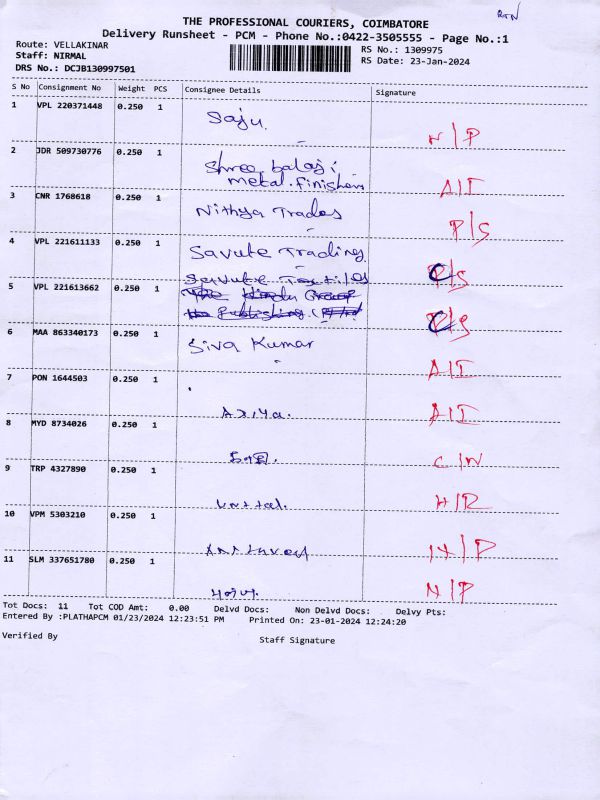 RTN
THE PROFESSIONAL COURIERS, COIMBATORE
Delivery Runsheet - PCM - Phone No.:0422-3505555 - Page No.:1
Route: VELLAKINAR
RS No.: 1309975
Staff: NIRMAL
RS Date: 23-Jan-2024
DRS No.: DCJB130997501
S No Consignment No Weight PCS Consignee Details Signature
1 VPL 220371448 0.250 1 Saju. N/P
2 JDR 509730776 0.250 1 Shree balaji
metal finishers A/I
3 CNR 1768618 0.250 1 Nithya Trades P/S
4 VPL 221611133 0.250 1 Savute Trading C/S
5 VPL 221613662 0.250 1 Savute Textiles
C/S
6 MAA 863340173 0.250 1 Siva Kumar A/I
7 PON 1644503 0.250 1 A/I
8 MYD 8734026 0.250 1 C/N
9 TRP 4327890 0.250 1 H/R
10 VPM 5303210 0.250 1 N/P
11 SLM 337651780 0.250 1 N/P
Tot Docs: 11 Tot COD Amt: 0.00 Delvd Docs: Non Delvd Docs: Delvy Pts:
Entered By :PLATHAPCM 01/23/2024 12:23:51 PM Printed On: 23-01-2024 12:24:20
Verified By Staff Signature